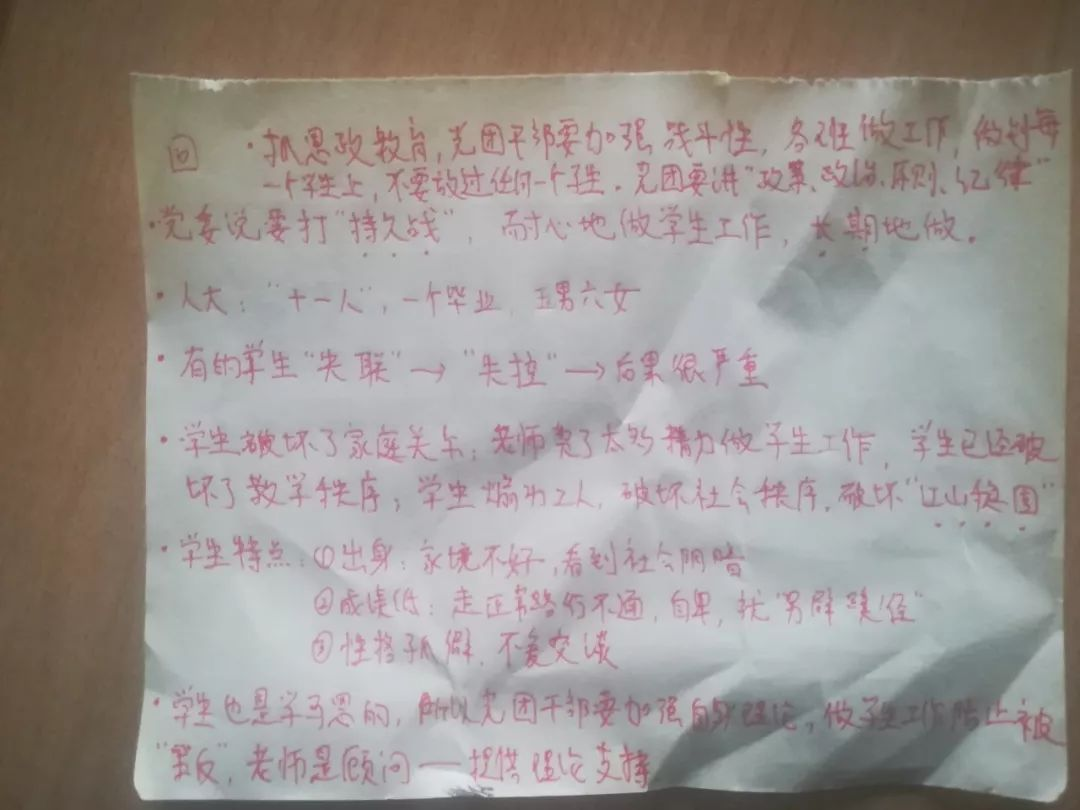 · 抓思政教育，党团干部要加强战斗性，各班做工作，做到每
一个学生上，不要放过任何一个学生。党团要讲"政策、政治、原则、纪律"
· 党委说要打"持久战"，耐心地做学生工作，长期地做。
· 人大："十一人"，一个毕业，五男六女
· 有的学生"失联"→"失控"→后果很严重
· 学生破坏了家庭关系；老师费了太多精力做学生工作，学生已经破
坏了教学秩序；学生煽动工人，破坏社会秩序，破坏"江山稳固"
· 学生特点：①出身：家境不好，看到社会阴暗
②成绩低：走正常路行不通，自卑，就"另辟蹊径"
③性格孤僻，不爱交谈
· 学生也是学马恩的，所以党团干部要加强自身理论，做学生工作防止被
"策反"，老师是顾问——提供理论支持